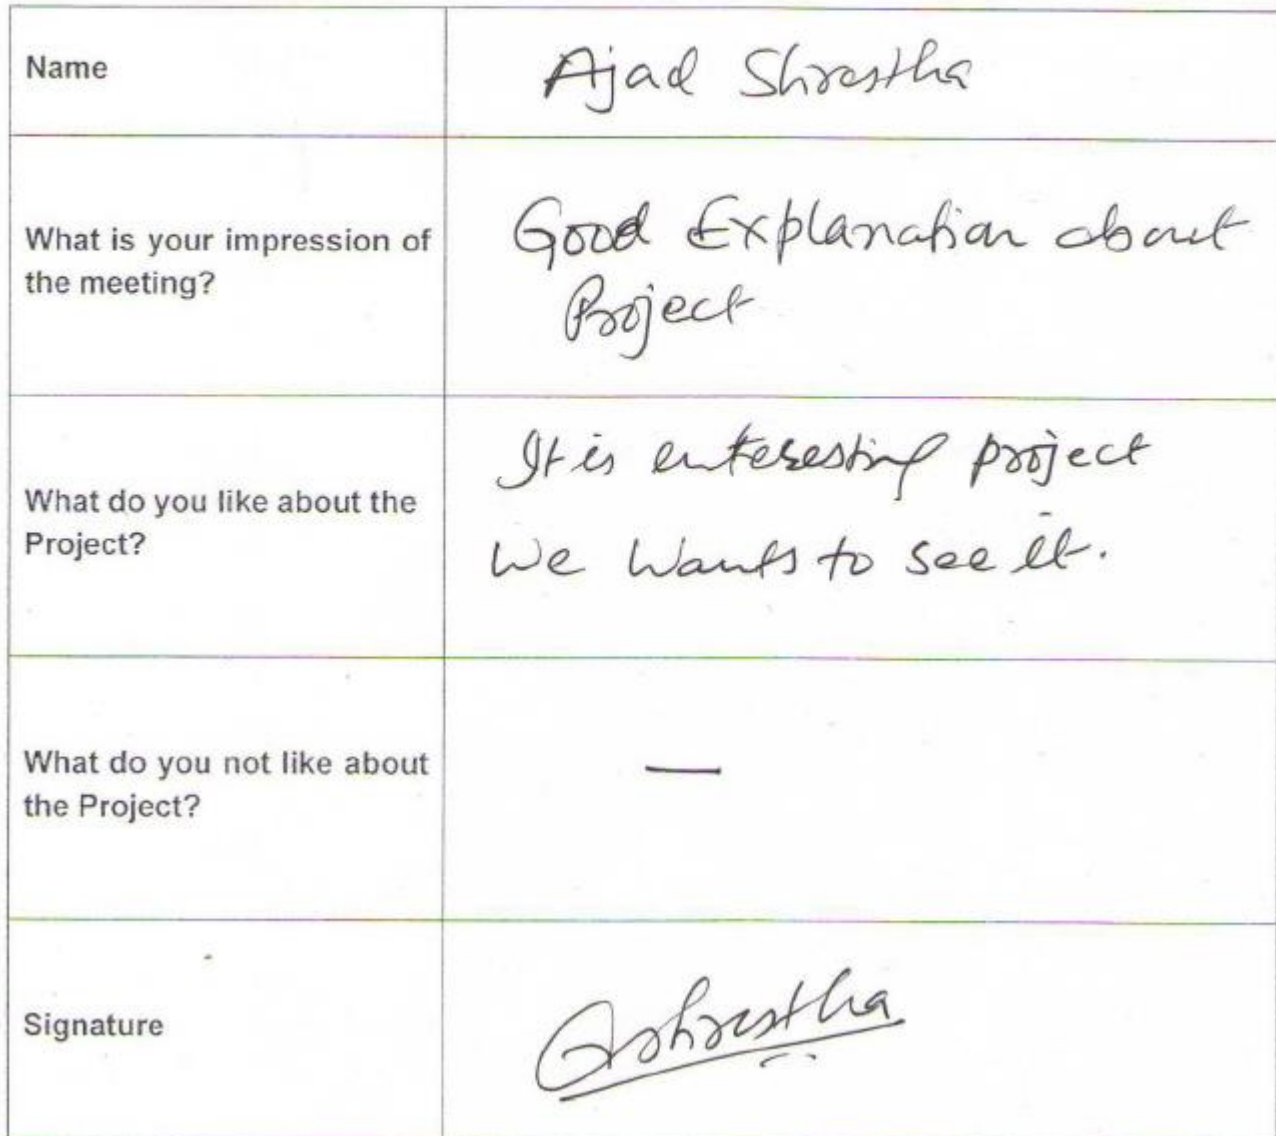 Name
Ajad Shrestha
What is your impression of
the meeting?
Good Explanation about
Project
What do you like about the
Project?
It is enteresting project
We Wants to see it.
What do you not like about
the Project?
—
Signature
Ashrestha